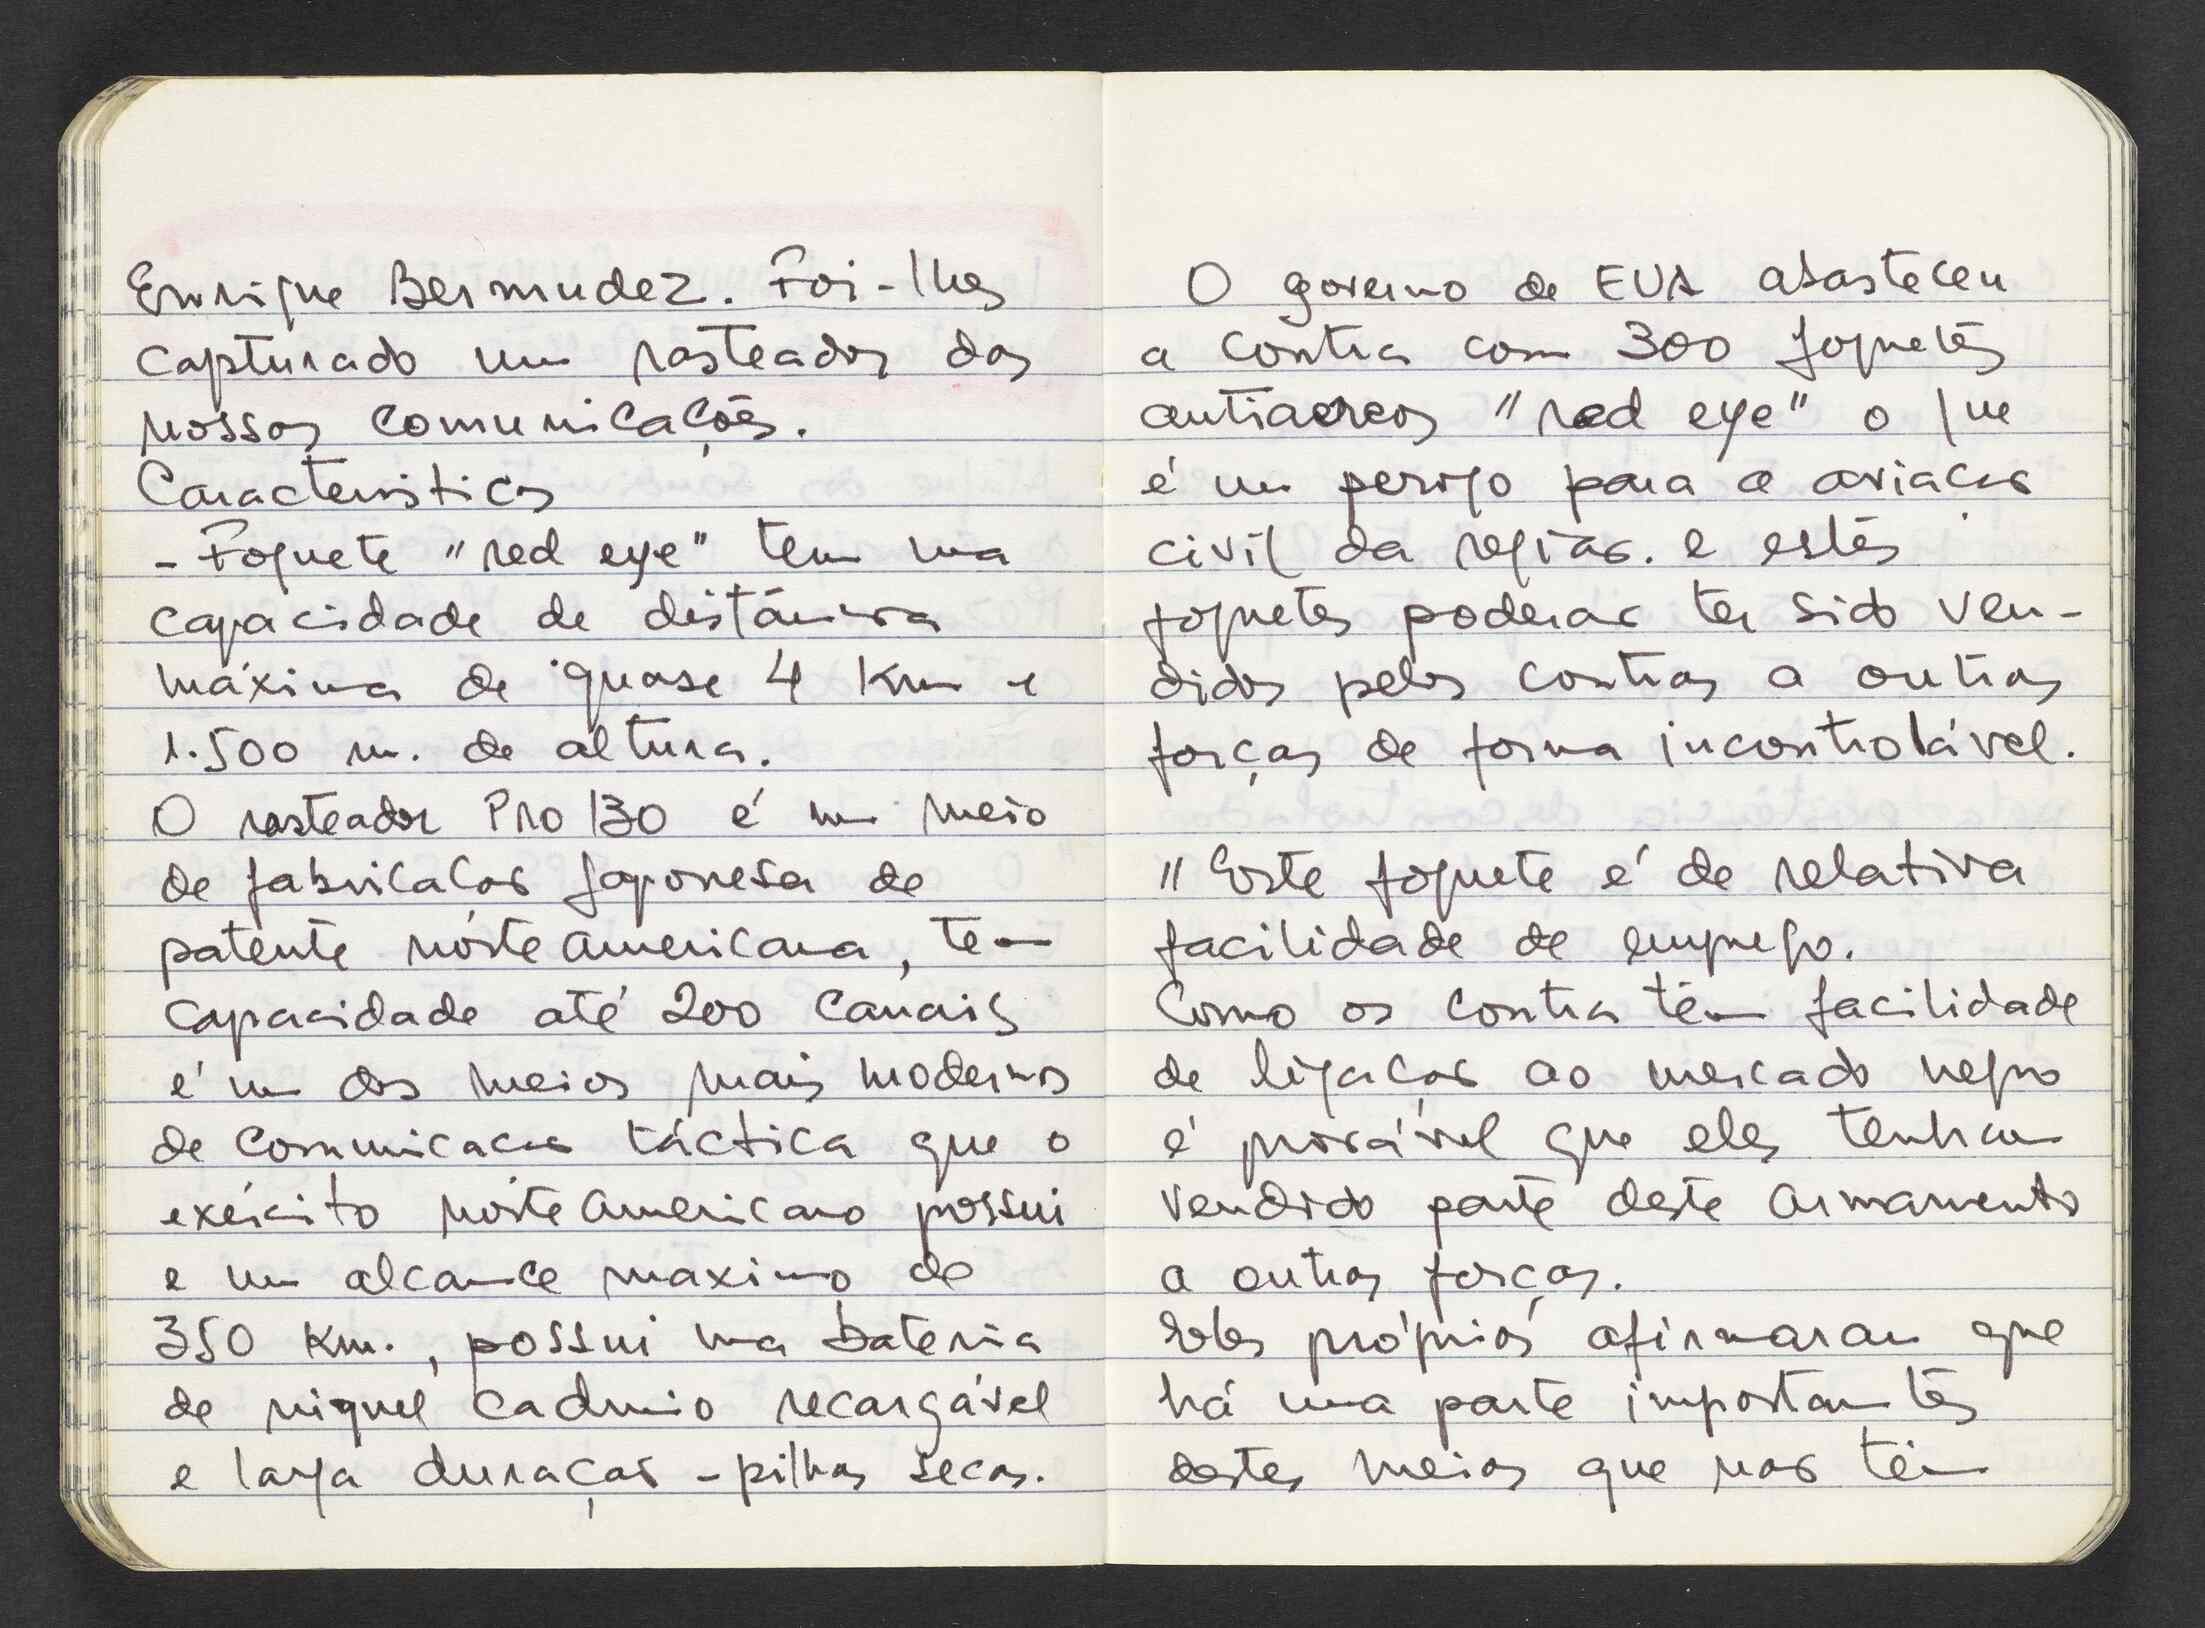 Enrique Bermudez. Foi-lhes
capturado um rasteador das
nossas comunicações.
Caracteristicas
- Foguete "red eye" tem uma
capacidade de distância
máxima de quase 4 Km e
1.500 m. de altura.
O rasteador PRO 130 é um meio
de fabricação Japonesa de
patente norte americana, tem
capacidade até 200 canais
é um dos meios mais modernos
de comunicação táctica que o
exército norte americano possui
e um alcance maximo de
350 Km., possui uma bateria
de niquel cadmio recargável
e larga duração - pilhas secas.
O governo de EUA abasteceu
a contra com 300 foguetes
antiaereos "red eye" o que
é um perigo para a aviação
civil da região. e estes
foguetes poderão ter sido ven-
didos pelos contras a outras
forças de forma incontrolável.
"Este foguete é de relativa
facilidade de emprego.
Como os contra têm facilidade
de ligação ao mercado negro
é provável que eles tenham
vendido parte deste armamento
a outras forças.
Eles próprios afirmaram que
há uma parte importantes
destes meios que não têm